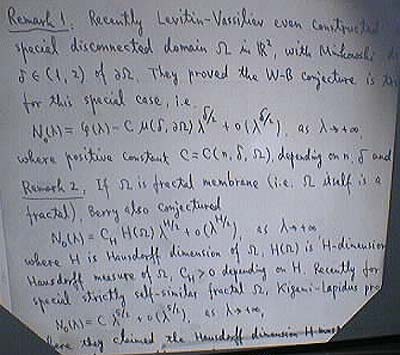 Remark 1. Recently Levitin-Vassiliev even constructed
special disconnected domain Ω in ℝ², with Minkowski
δ ∈ (1, 2) of ∂Ω. They proved the W-B conjecture is
for this special case, i.e.
N₀(λ) = φ(λ) - C μ(δ, ∂Ω) λ^{δ/2} + o(λ^{δ/2}), as λ → +∞,
where positive constant C = C(n, δ, Ω), depending on n, δ and
Remark 2. If Ω is fractal membrane (i.e. Ω itself is a
fractal), Berry also conjectured
N₀(λ) = C_H H(Ω) λ^{H/2} + o(λ^{H/2}), as λ → +∞
where H is Hausdorff dimension of Ω, H(Ω) is H-dimension
Hausdorff measure of Ω, C_H > 0 depending on H. Recently for
special strictly self-similar fractal Ω, Kigami-Lapidus
N₀(λ) = C λ^{δ/2} + o(λ^{δ/2}), as λ → +∞,
here they claimed the Hausdorff dimension